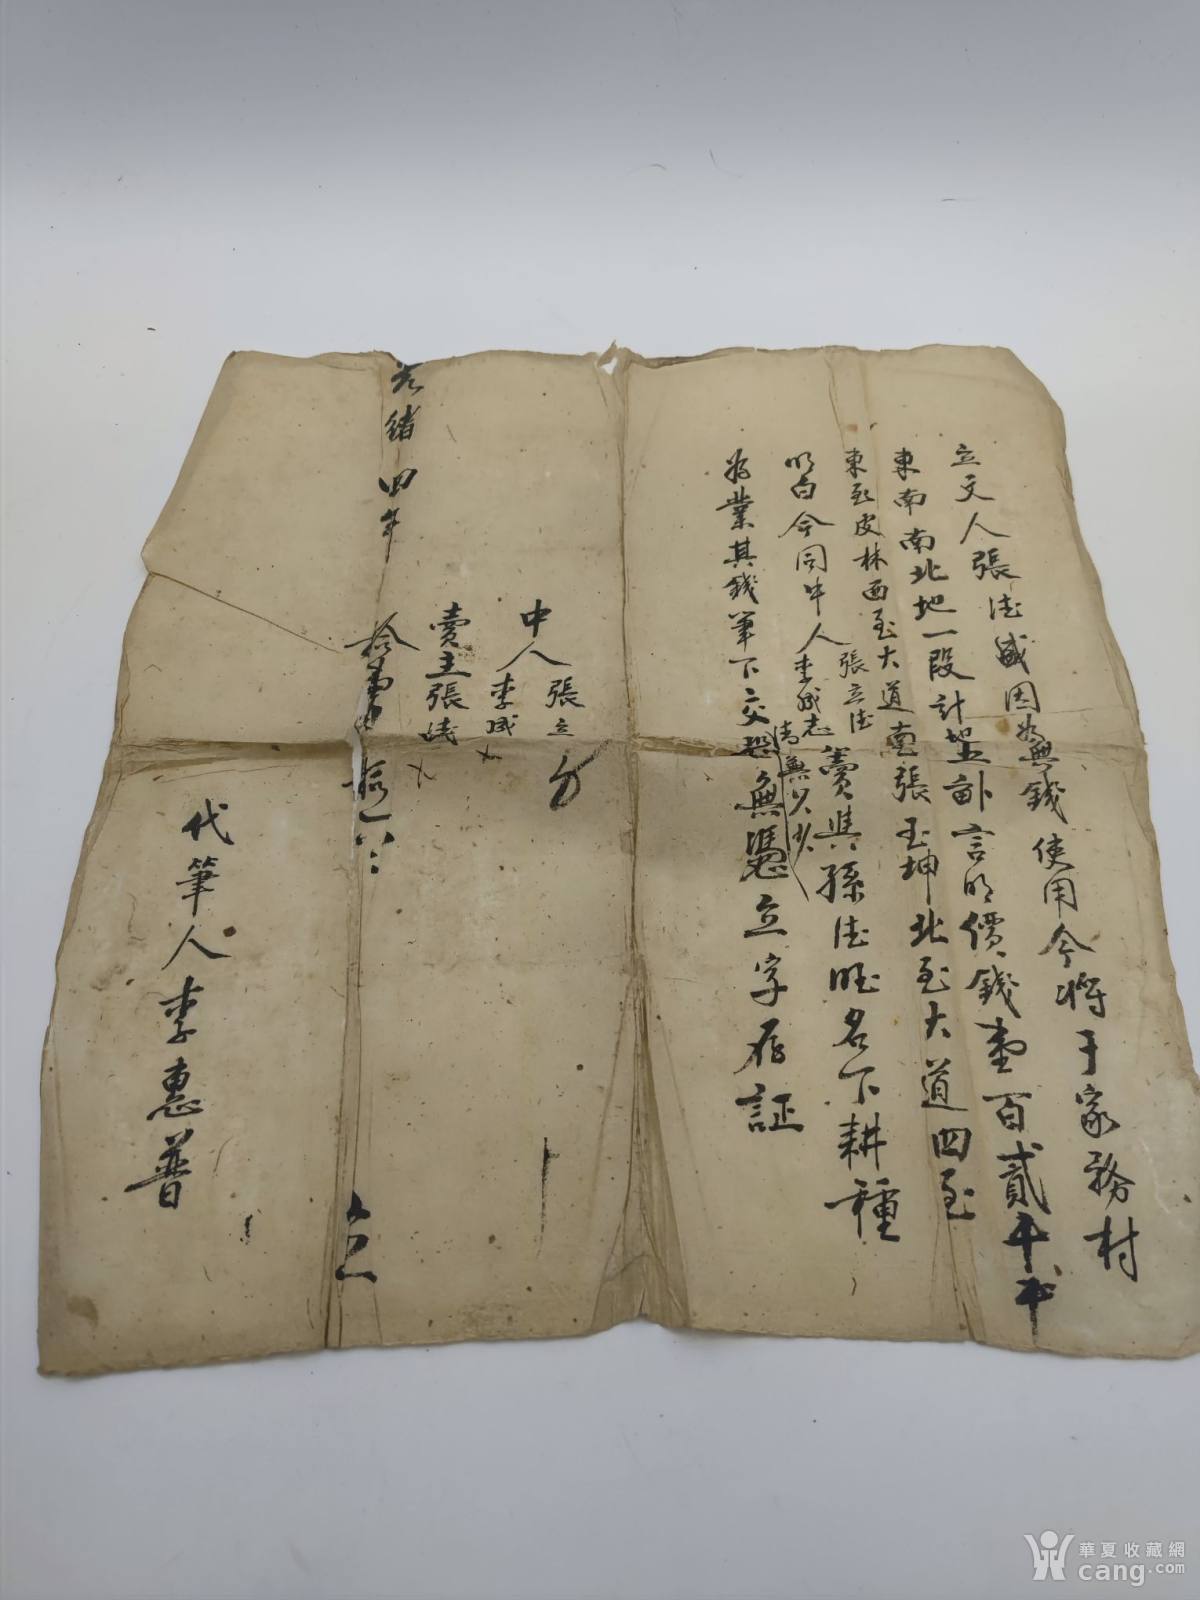 立文人張德盛因為無錢使用今將于家務村
東南南北地一段計地五畝言明價錢壹百貳千
東至皮林西至大道南張玉坤北至大道四至
明白今同中人張立德李成志賣與孫德旺名下耕種
為業其錢筆下交清無欠少恐無憑立字存証
中人張立
李成
賣主張德
光緒四年拾壹月初六立
代筆人李惠普
華夏收藏網
cang.com